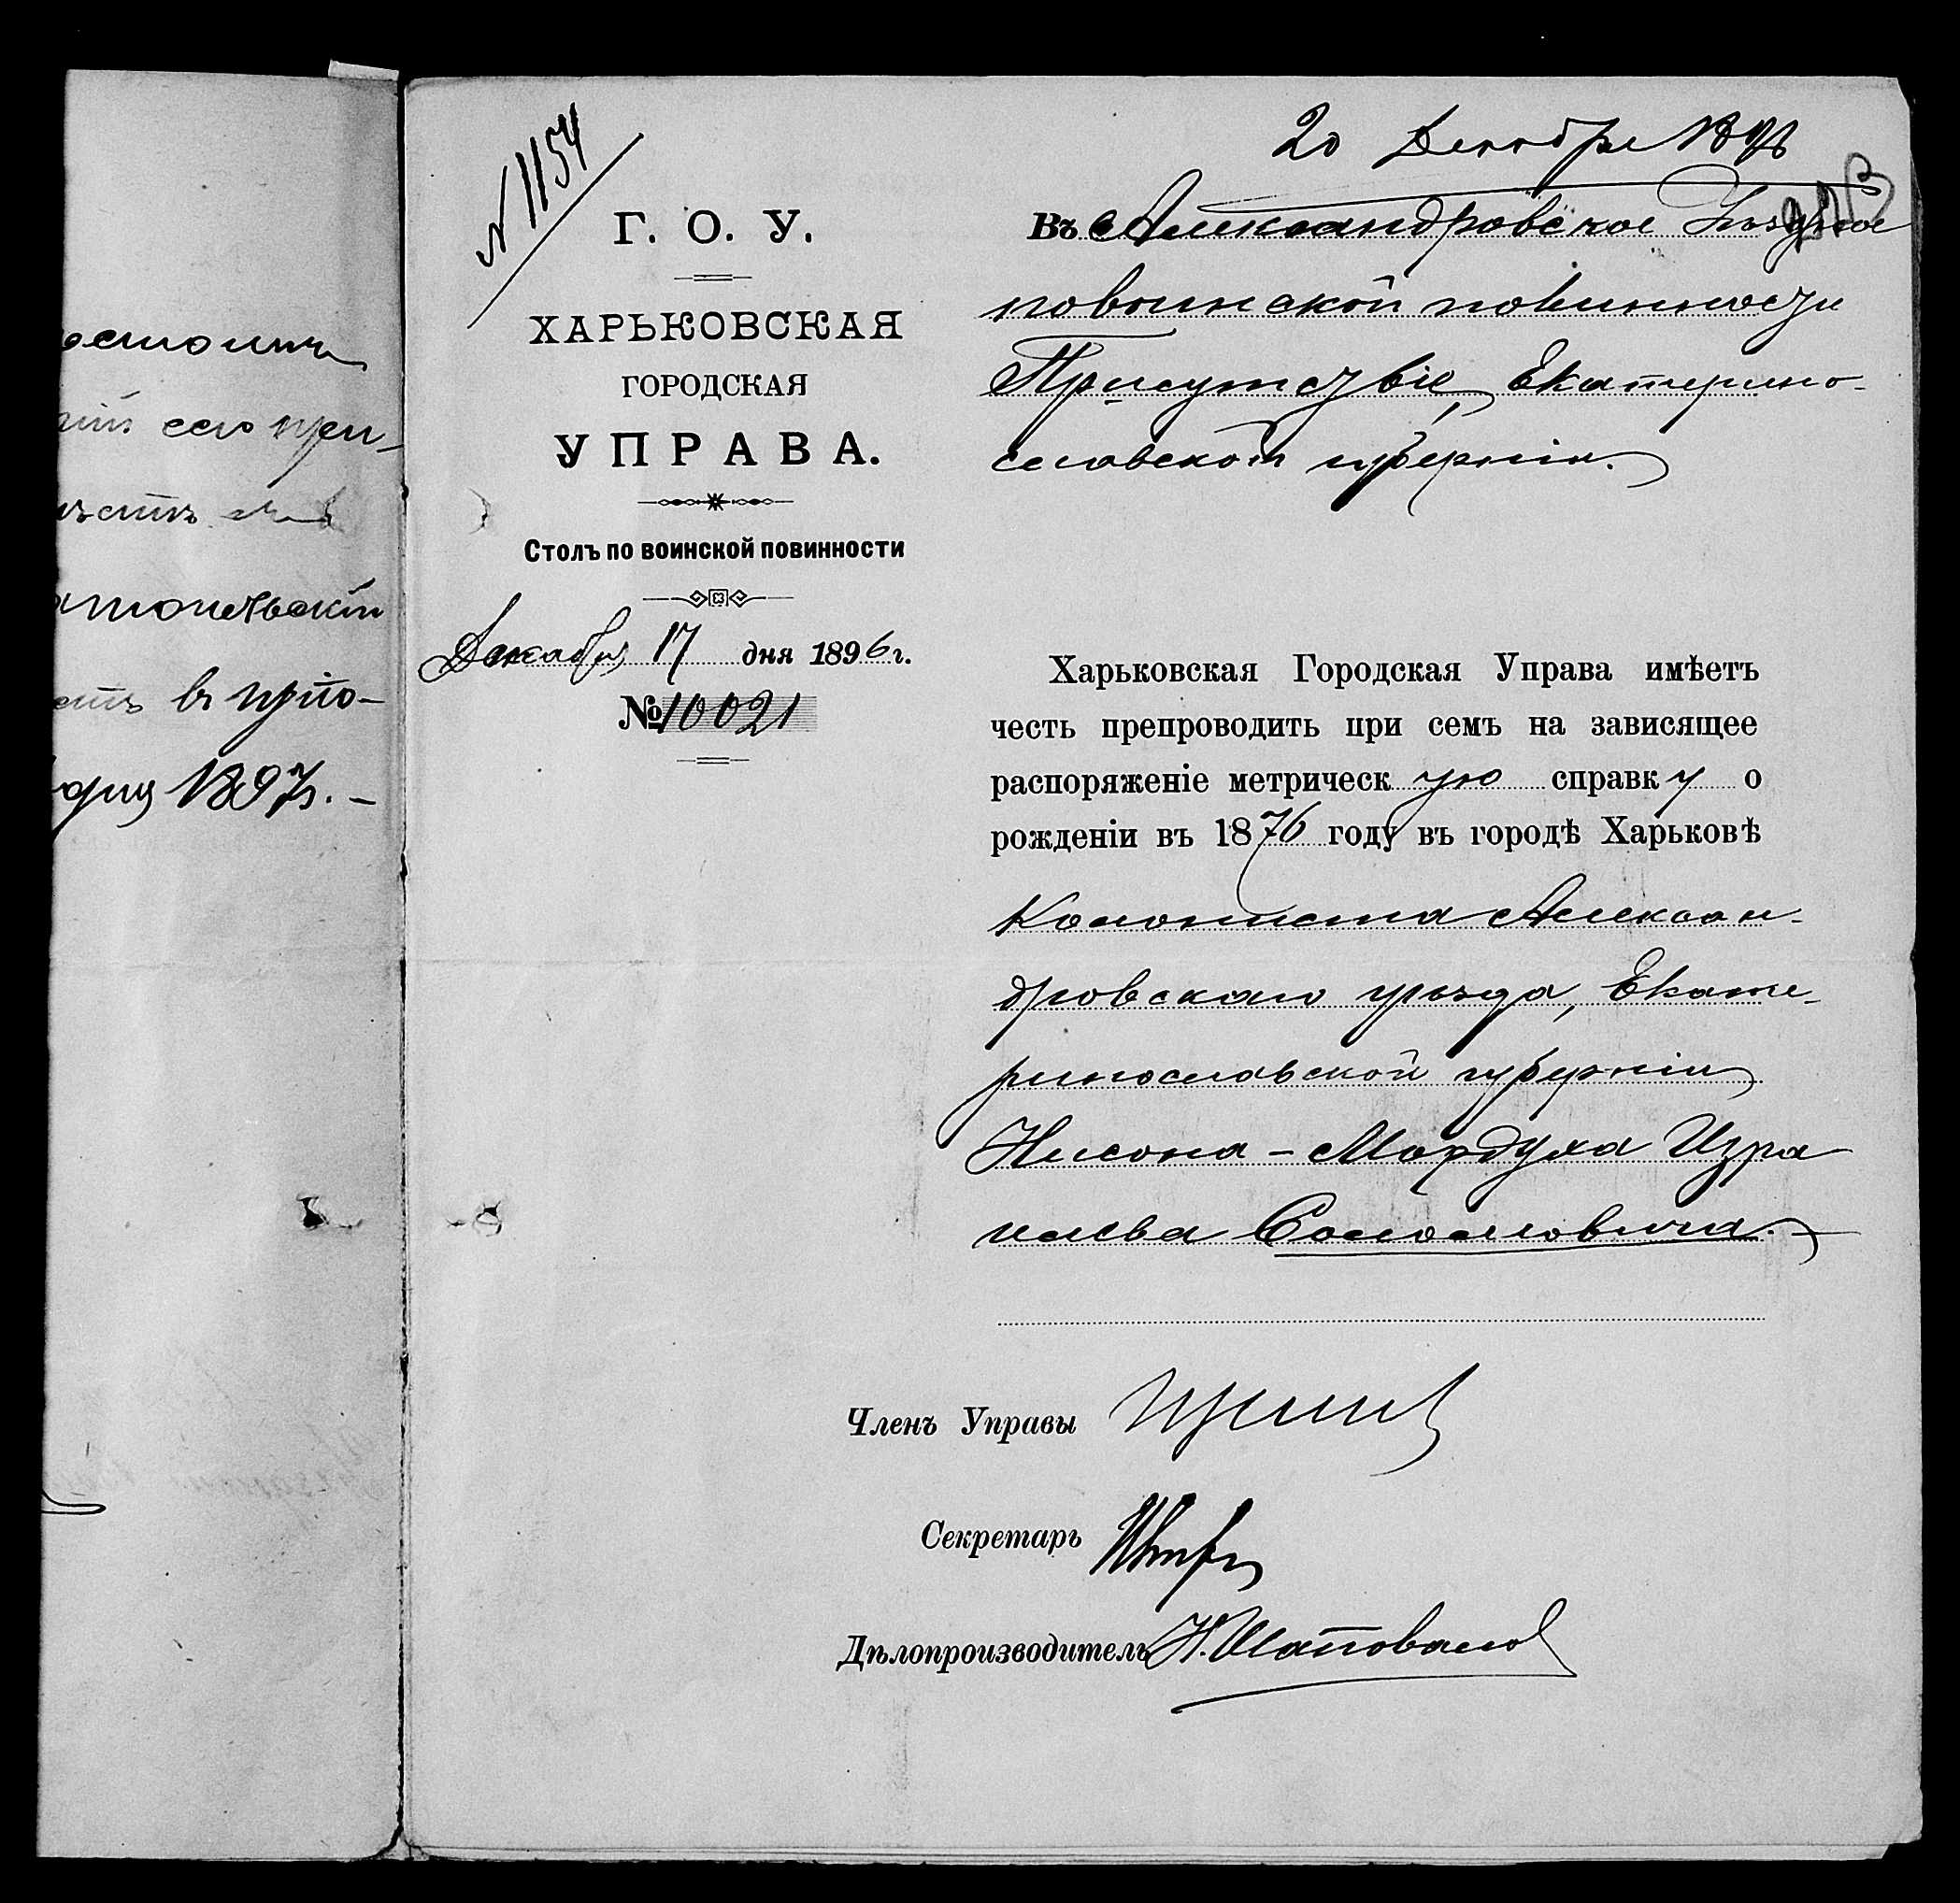 остоитъ
сего при-
въ прто-
1897г. —
N 1154
20 Декабря 1896
Г. О. У.
ХАРЬКОВСКАЯ
ГОРОДСКАЯ
УПРАВА.
Столъ по воинской повинности
Декабря 17 дня 1896 г.
№ 10021
Въ Александровское Уѣздное
по воинской повинности
Присутствіе, Екатерино-
славской губерніи.
Харьковская Городская Управа имѣетъ
честь препроводить при семъ на зависящее
распоряженіе метрическую справку о
рожденіи въ 1876 году въ городѣ Харьковѣ
Колониста Алексан-
дровскаго уѣзда, Екате-
ринославской губерніи
Нисона-Мордуха Изра
илева Соломоновича.
Членъ Управы
Секретарь
Дѣлопроизводитель Н. Шаповалов